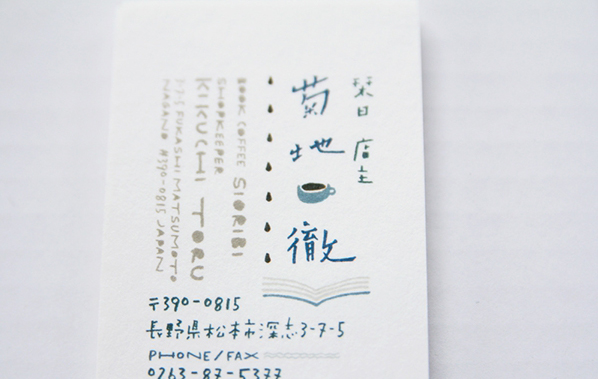 栞日 店主
菊地 徹
BOOK COFFEE SIORIBI
SHOPKEEPER
KIKUCHI TORU
3-7-5 FUKASHI MATSUMOTO
NAGANO #390-0815 JAPAN
〒390-0815
長野県松本市深志3-7-5
PHONE/FAX
0263-87-5377